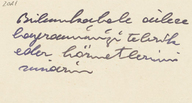 2021
Bilmukabele ailece
bayramınızı tebrik
eder hürmetlerimi
sunarım